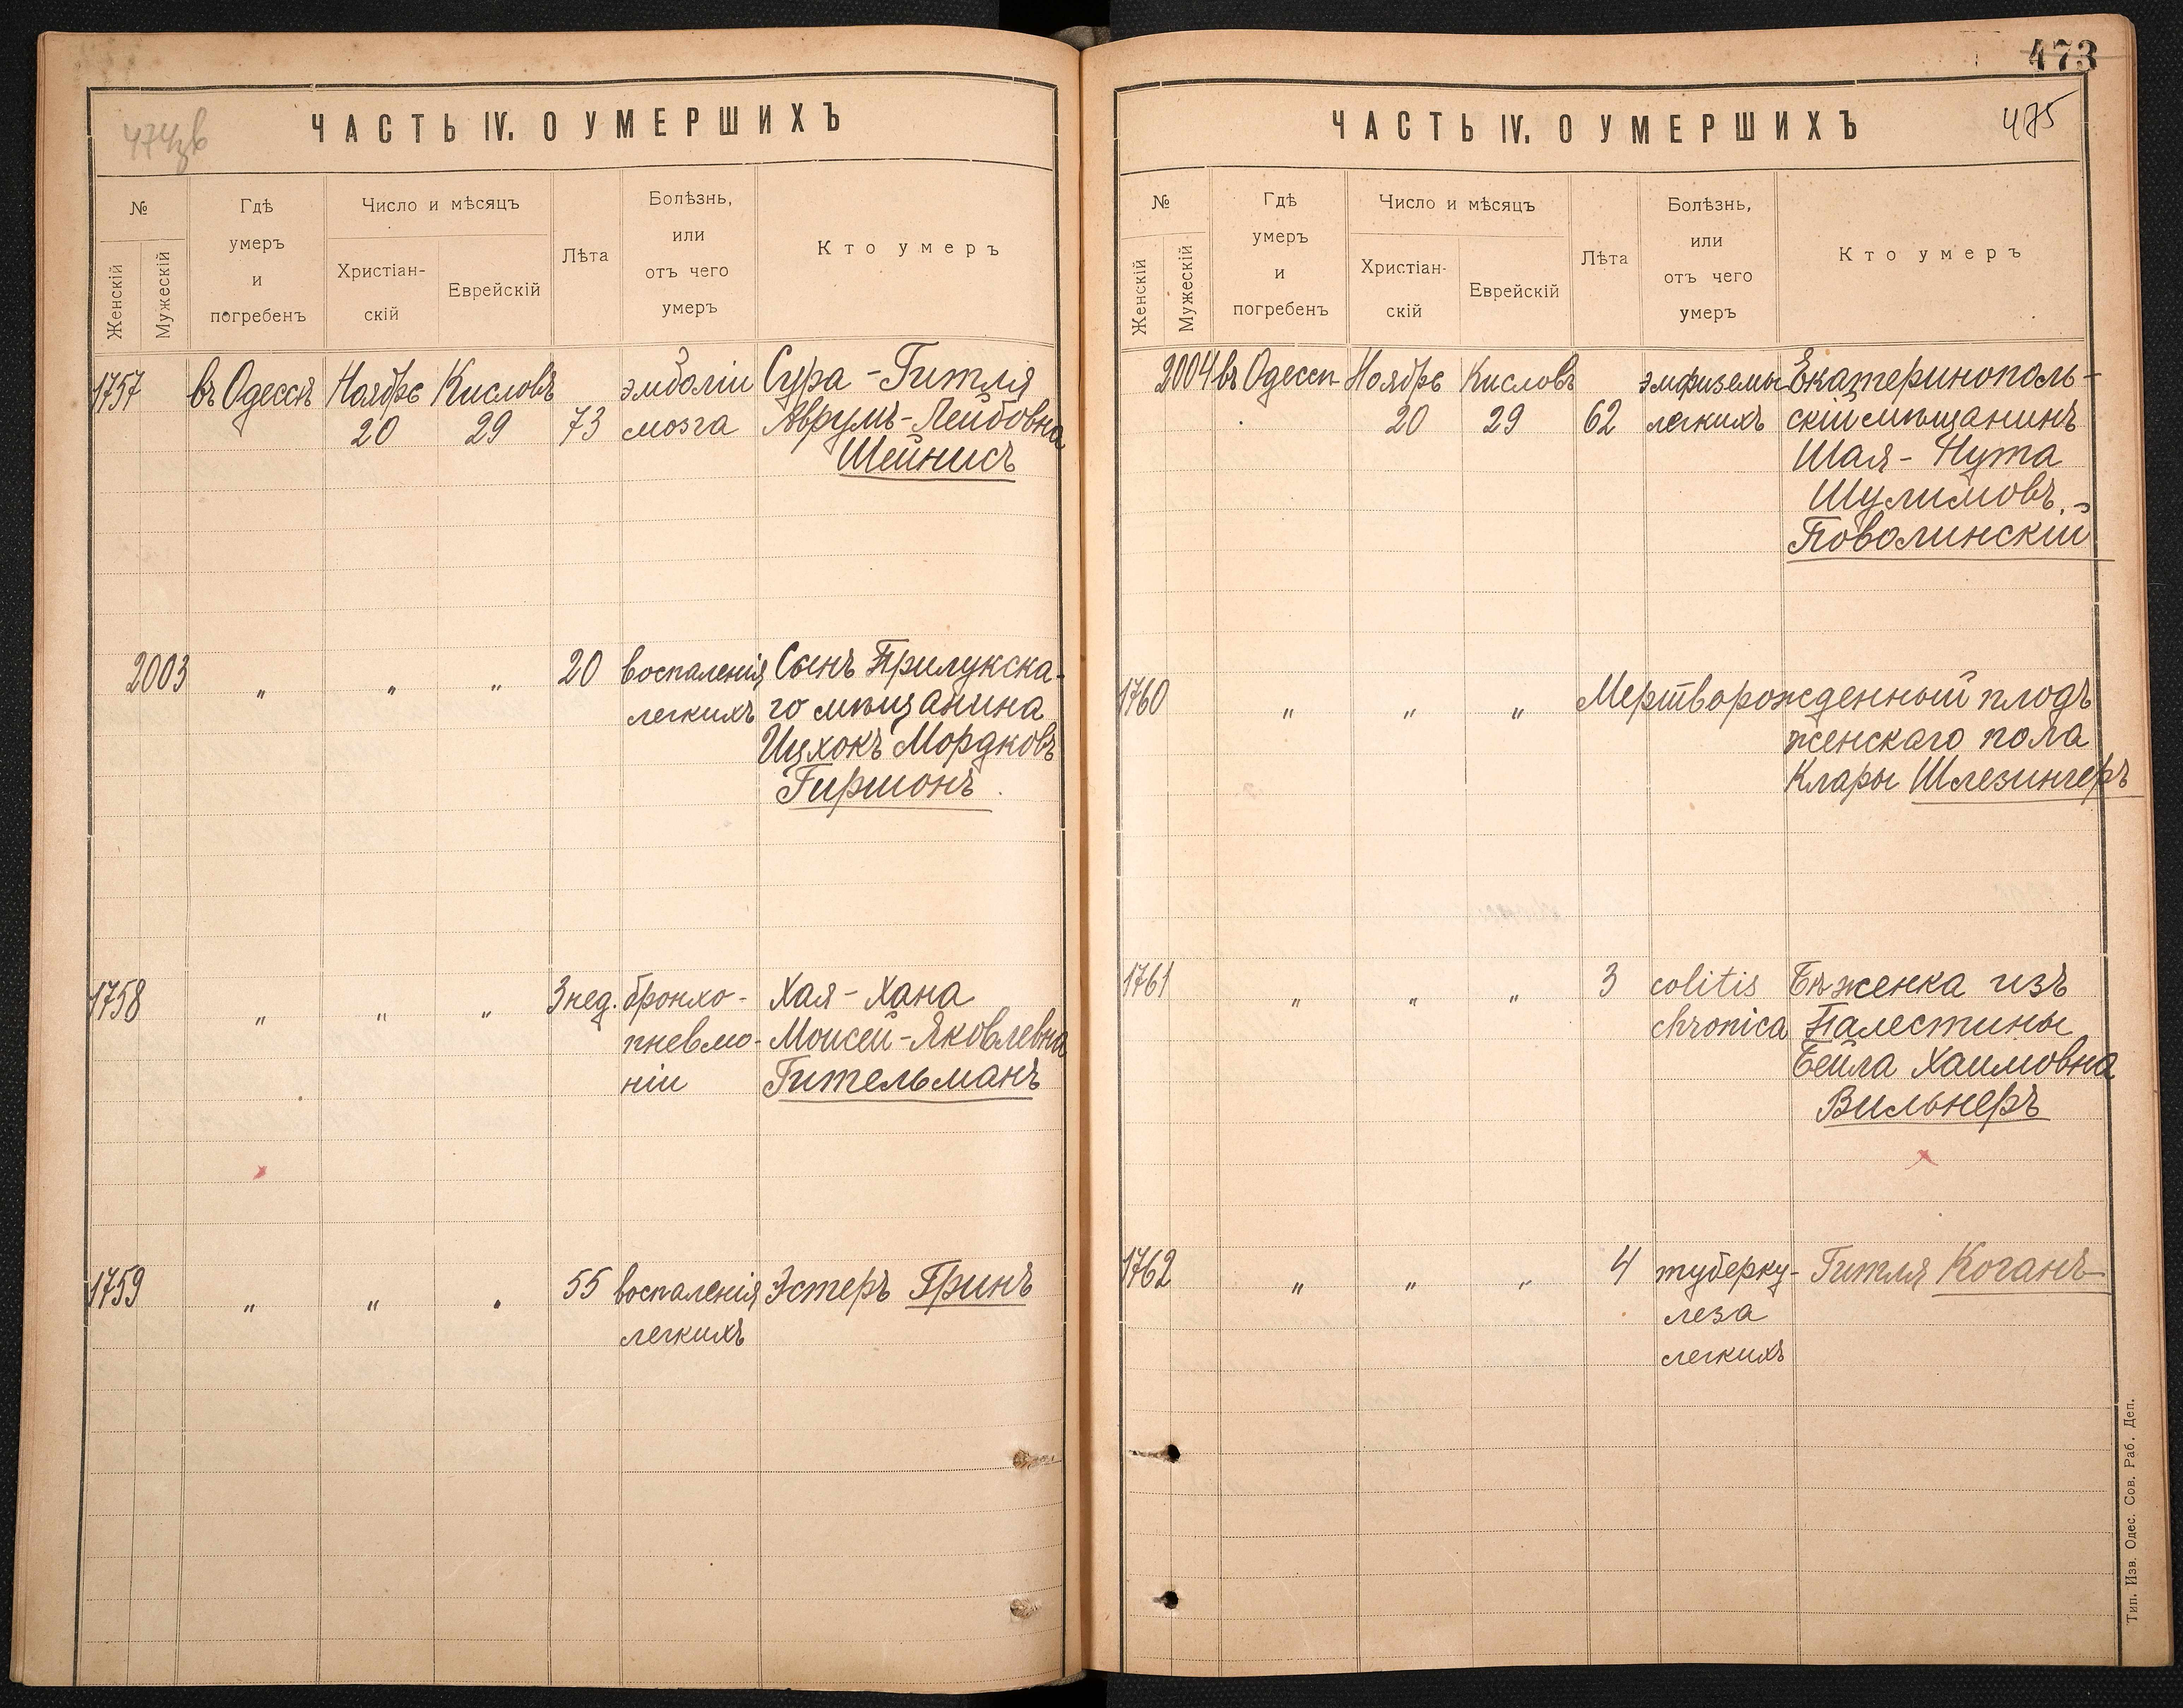 473
474зв
ЧАСТЬ IV. О УМЕРШИХЪ
№
Женскій
Мужескій
Гдѣ
умеръ
и
погребенъ
Число и мѣсяцъ
Христіан-
скій
Еврейскій
Лѣта
Болѣзнь,
или
отъ чего
умеръ
Кто умеръ
1757 въ Одессѣ Ноябрь Кисловъ эмболіи Сура-Гитля
20 29 73 мозга Аврумъ-Лейбовна
Шейнисъ
2003 " " " 20 воспаленія Сынъ Прилукска-
легкихъ го мѣщанина
Ицхокъ Мордковъ
Гиршонъ
1758 " " " 3 нед. бронхо- Хая-Хана
пневмо- Моисей-Яковлевна
ніи Гительманъ
1759 " " " 55 воспаленія Эстеръ Гринъ
легкихъ
ЧАСТЬ IV. О УМЕРШИХЪ
475
№
Женскій
Мужескій
Гдѣ
умеръ
и
погребенъ
Число и мѣсяцъ
Христіан-
скій
Еврейскій
Лѣта
Болѣзнь,
или
отъ чего
умеръ
Кто умеръ
2004 въ Одессѣ Ноябрь Кисловъ эмфиземы Екатеринополь-
20 29 62 легкихъ скій мѣщанинъ
Шая-Нута
Шулимовъ
Поволинскій
1760 " " " Мертворожденный плодъ
женскаго пола
Клары Шлезингеръ
1761 " " " 3 colitis Бѣженка изъ
chronica Палестины
Бейла Хаимовна
Вильнеръ
1762 " " " 4 туберку- Гитля Коганъ
леза
легкихъ
Тип. Изв. Одес. Сов. Раб. Деп.